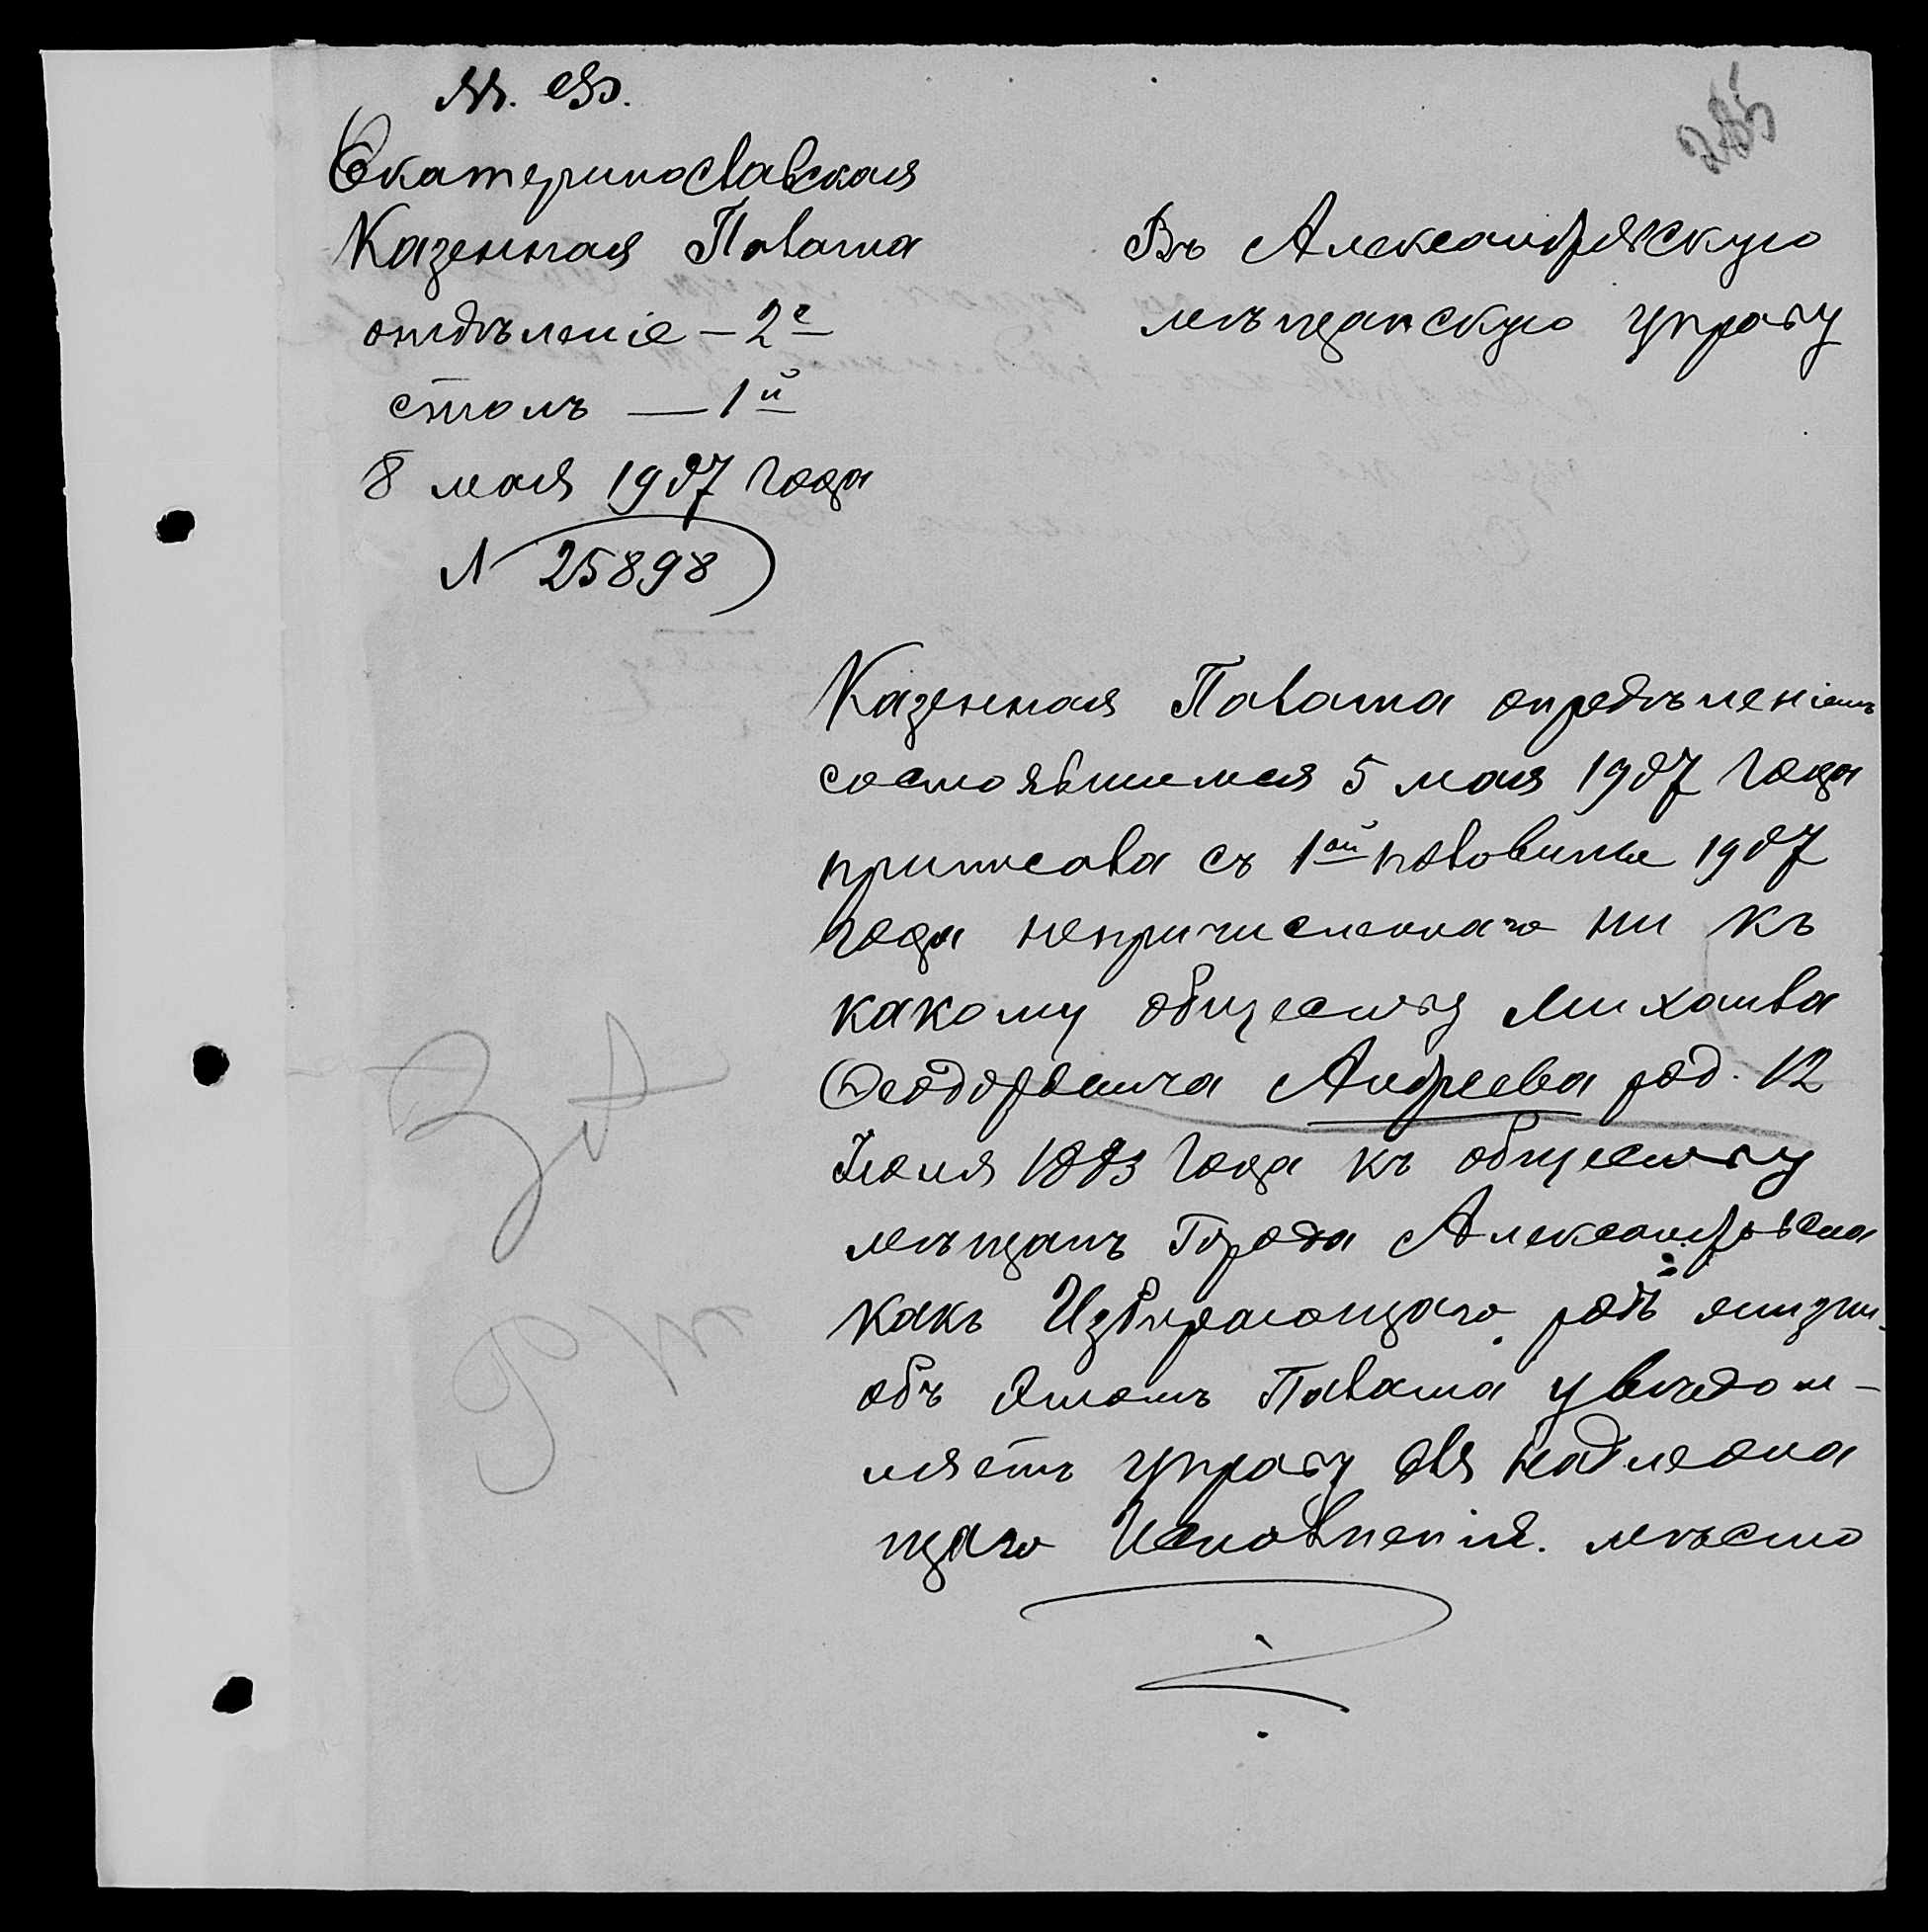 М. Ф.
Екатеринославская
Казенная Палата
отдѣленіе — 2е
столъ — 1й
8 мая 1907 года
№ 25898
285
Въ Александрвскую
мѣщанскую управу
Казенная Палата опредѣленіемъ
состоявшимся 5 мая 1907 года
приписала съ 1ой половины 1907
года непричисленнаго ни къ
какому обществу Михаила
Феодоровича Андреева род. 12
Іюля 1883 года къ обществу
мѣщанъ Города Александровска
какъ Избирающаго родъ жизни
объ этомъ Палата увѣдом-
ляетъ управу для надлежа
щаго Исполненія.